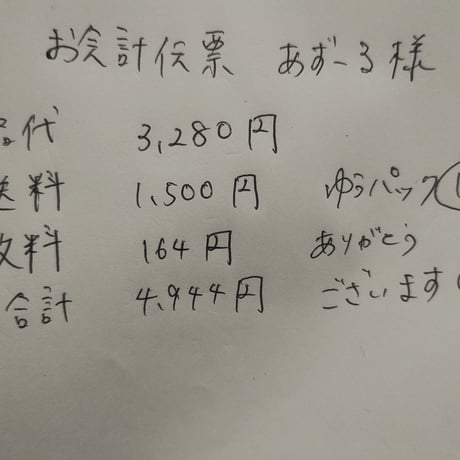 お会計伝票 あずーる様
品代 3,280円
送料 1,500円 ゆうパック
数料 164円 ありがとう
合計 4,944円 ございます